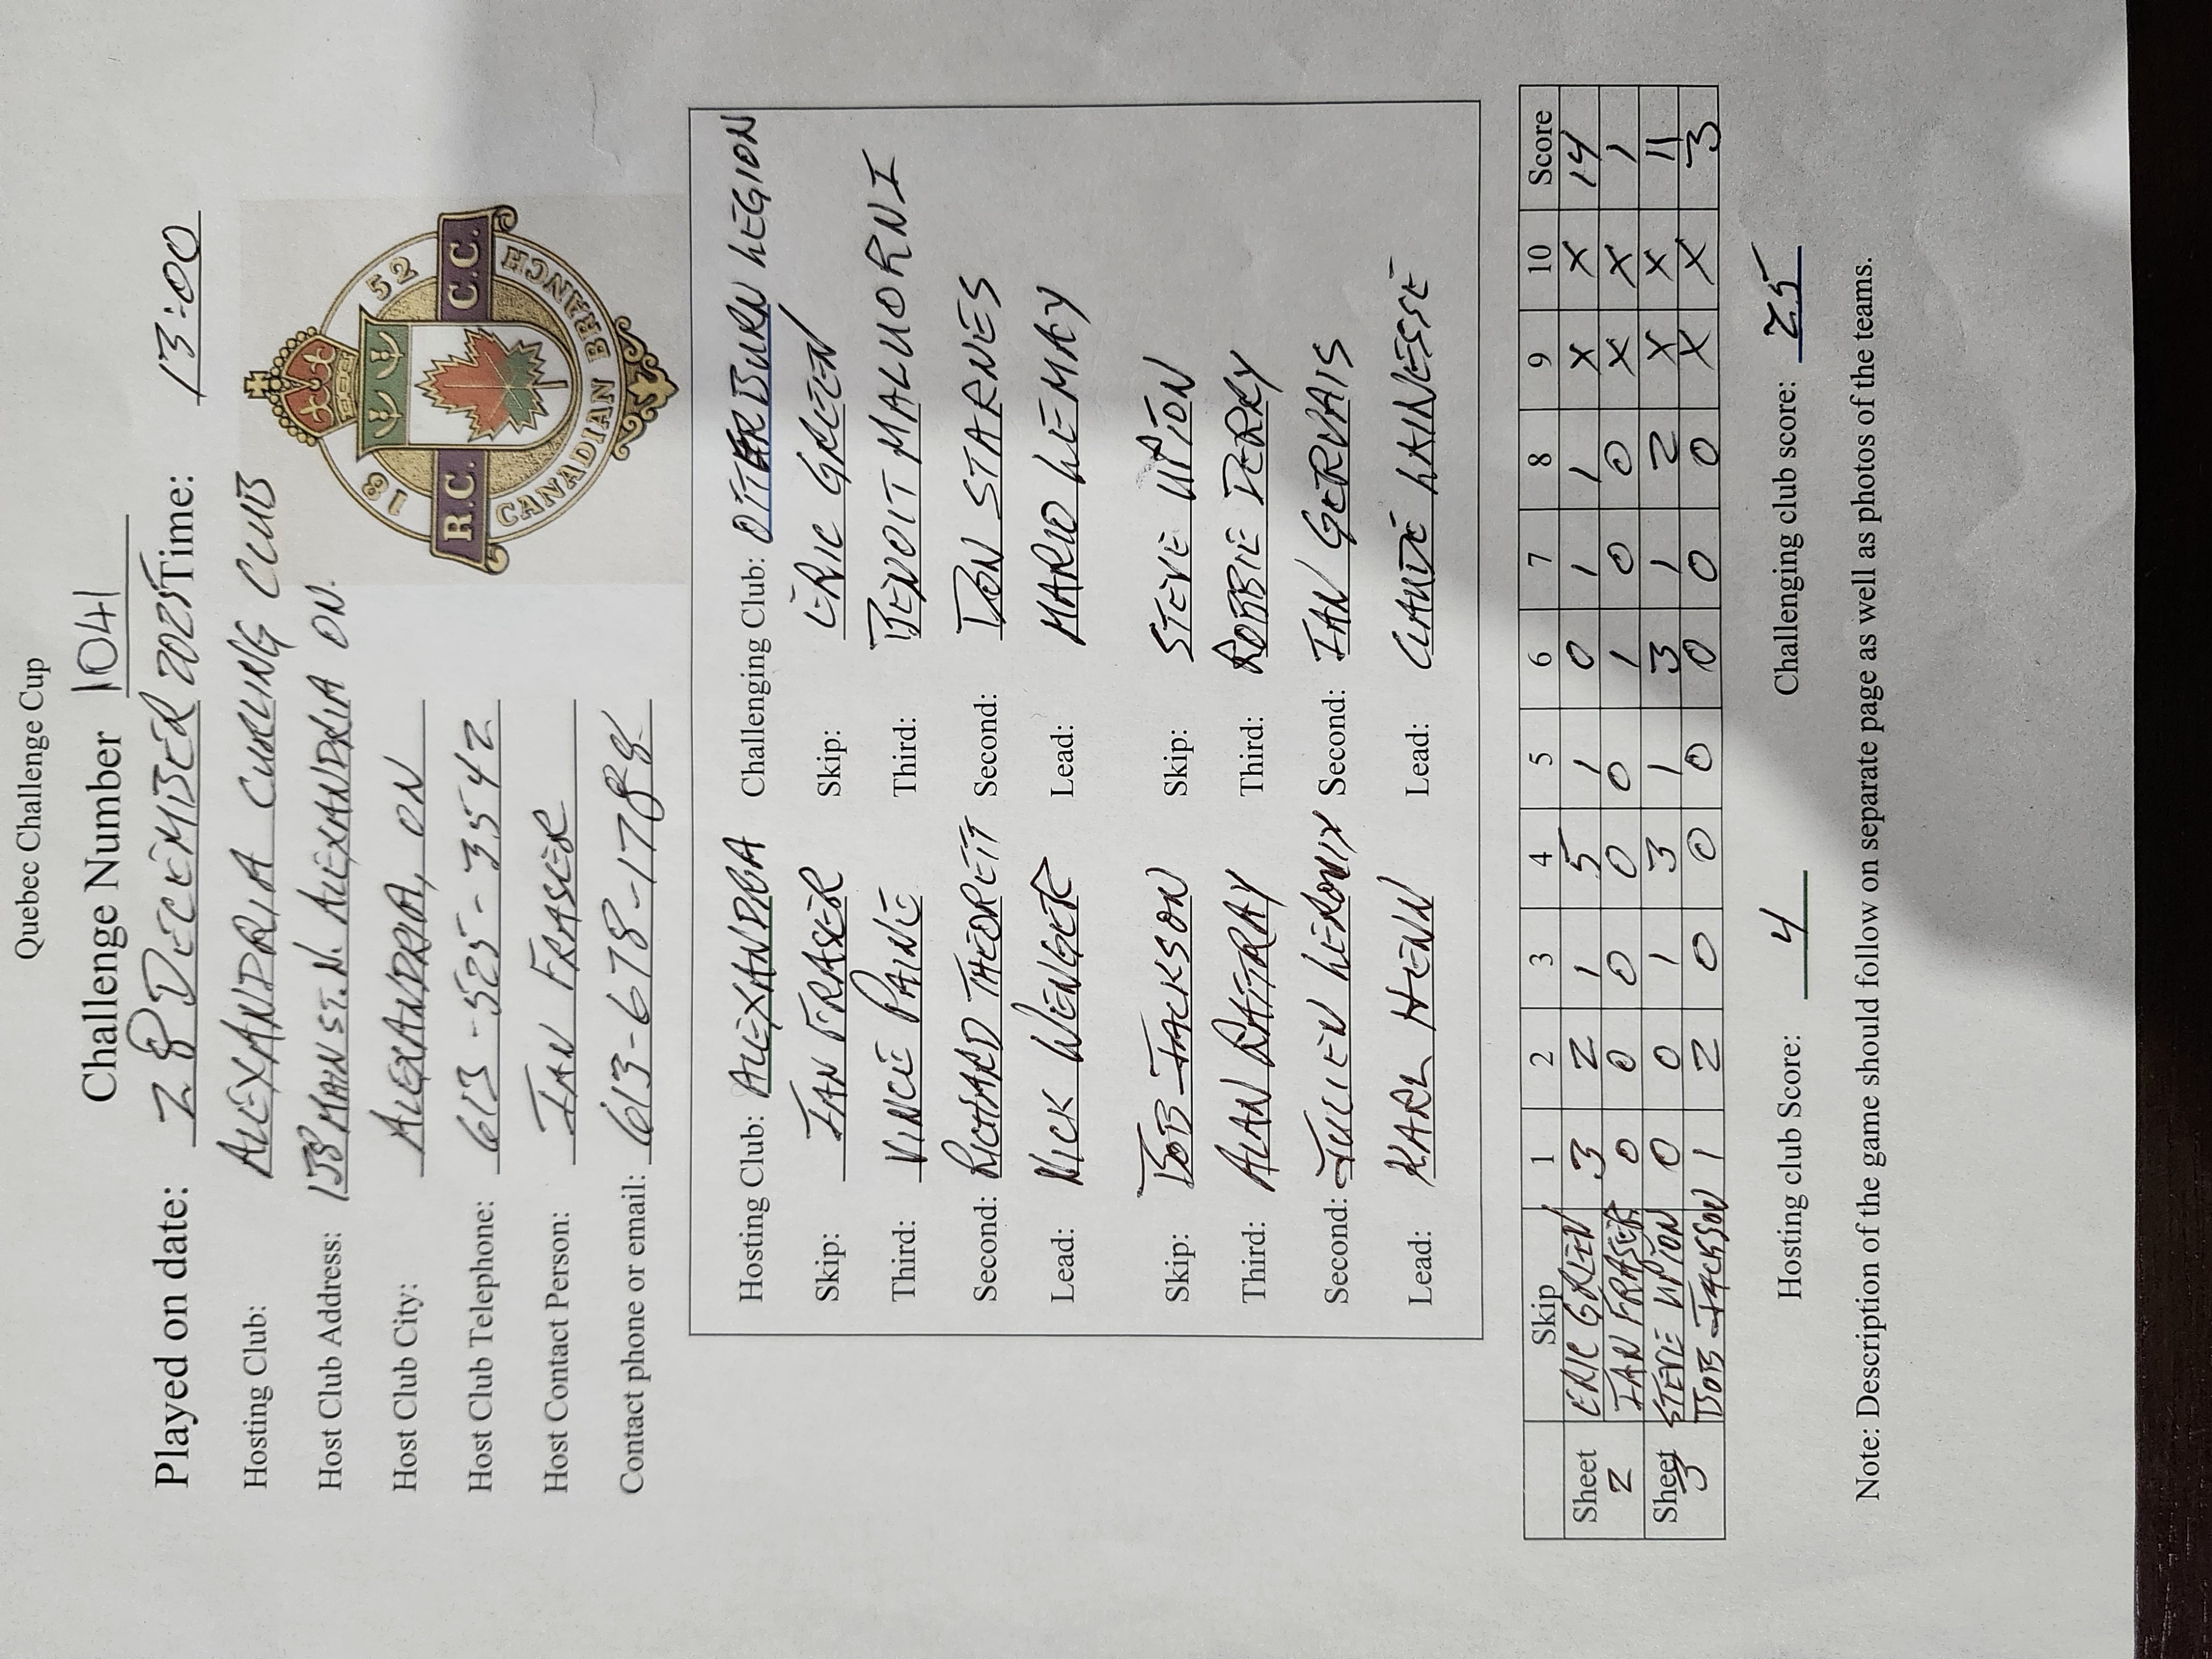 Quebec Challenge Cup
Challenge Number 1041
Played on date: 28 DECEMBER 2025 Time: 13:00
Hosting Club: ALEXANDRIA CURLING CLUB
Host Club Address: MAIN ST. N. ALEXANDRIA ON.
Host Club City: ALEXANDRIA, ON
Host Club Telephone: 613-525-3542
Host Contact Person: IAN FRASER
Contact phone or email: 613-678-1788
1852
R.C. C.C.
CANADIAN BRANCH
Hosting Club: ALEXANDRIA Challenging Club: OTTERBURN LEGION
Skip: IAN FRASER Skip: ERIC GREEN
Third: VINCE PAINE Third: BENOIT MALUORNI
Second: RICHARD THEORETT Second: DON STARNES
Lead: NICK WENGER Lead: MARIO LEMAY
Skip: BOB JACKSON Skip: STEVE UPTON
Third: ALAN RATTRAY Third: ROBBIE DERRY
Second: JULIEN Second: IAN GERVAIS
Lead: KARL HENN Lead: CLAUDE LAINESSE
Skip 1 2 3 4 5 6 7 8 9 10 Score
Sheet 2 ERIC GREEN 3 2 1 5 1 0 1 1 X X 14
IAN FRASER 0 0 0 0 0 1 0 0 X X 1
Sheet 3 STEVE UPTON 0 0 1 3 1 3 1 2 X X 11
BOB JACKSON 1 2 0 0 0 0 0 0 X X 3
Hosting club Score: 4 Challenging club score: 25
Note: Description of the game should follow on separate page as well as photos of the teams.